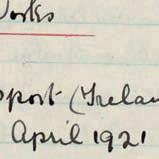 Works
sport (Irelan
April 1921